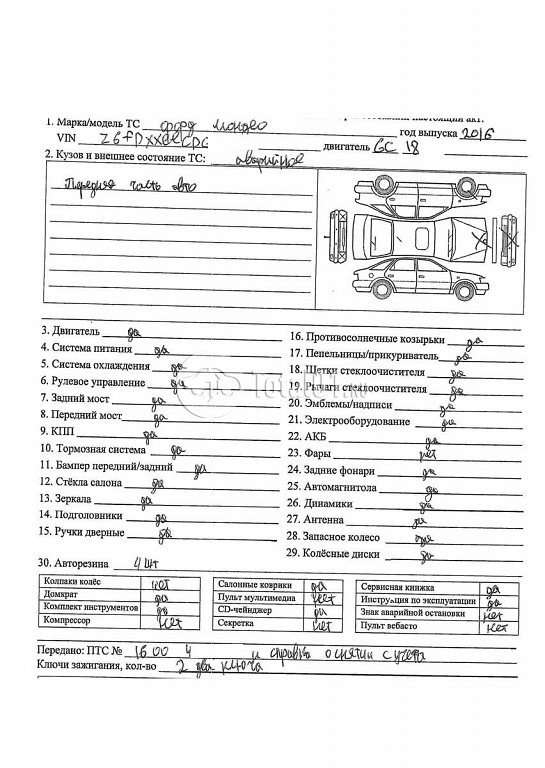 1. Марка/модель ТС форд мондео год выпуска 2016
VIN Z6FDXXEECDG двигатель GC 18
2. Кузов и внешнее состояние ТС: аварийное
Передняя часть авто
3. Двигатель да
4. Система питания да
5. Система охлаждения да
6. Рулевое управление да
7. Задний мост да
8. Передний мост да
9. КПП да
10. Тормозная система да
11. Бампер передний/задний да
12. Стёкла салона да
13. Зеркала да
14. Подголовники да
15. Ручки дверные да
16. Противосолнечные козырьки да
17. Пепельницы/прикуриватель да
18. Щетки стеклоочистителя да
19. Рычаги стеклоочистителя да
20. Эмблемы/надписи да
21. Электрооборудование да
22. АКБ да
23. Фары нет
24. Задние фонари да
25. Автомагнитола да
26. Динамики да
27. Антенна да
28. Запасное колесо
29. Колёсные диски да
30. Авторезина 4 шт
Колпаки колёс нет
Домкрат да
Комплект инструментов да
Компрессор нет
Салонные коврики да
Пульт мультимедиа нет
CD-чейнджер
Секретка нет
Сервисная книжка да
Инструкция по эксплуатации да
Знак аварийной остановки нет
Пульт вебасто нет
Передано: ПТС № 16 00 и справка о снятии с учета
Ключи зажигания, кол-во 2 два ключа